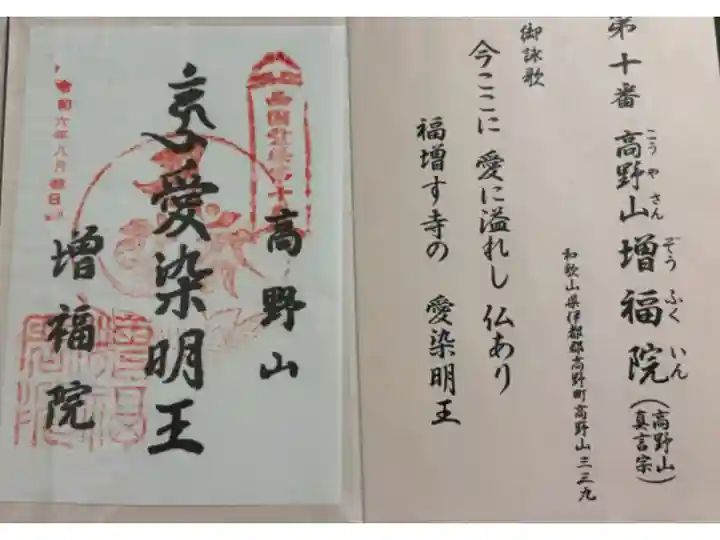 第十番 高野山増福院(高野山真言宗)
こうやさん ぞうふくいん
和歌山県伊都郡高野町高野山三三九
御詠歌
今ここに 愛に溢れし 仏あり
福増す寺の 愛染明王
高野山
愛染明王
増福院